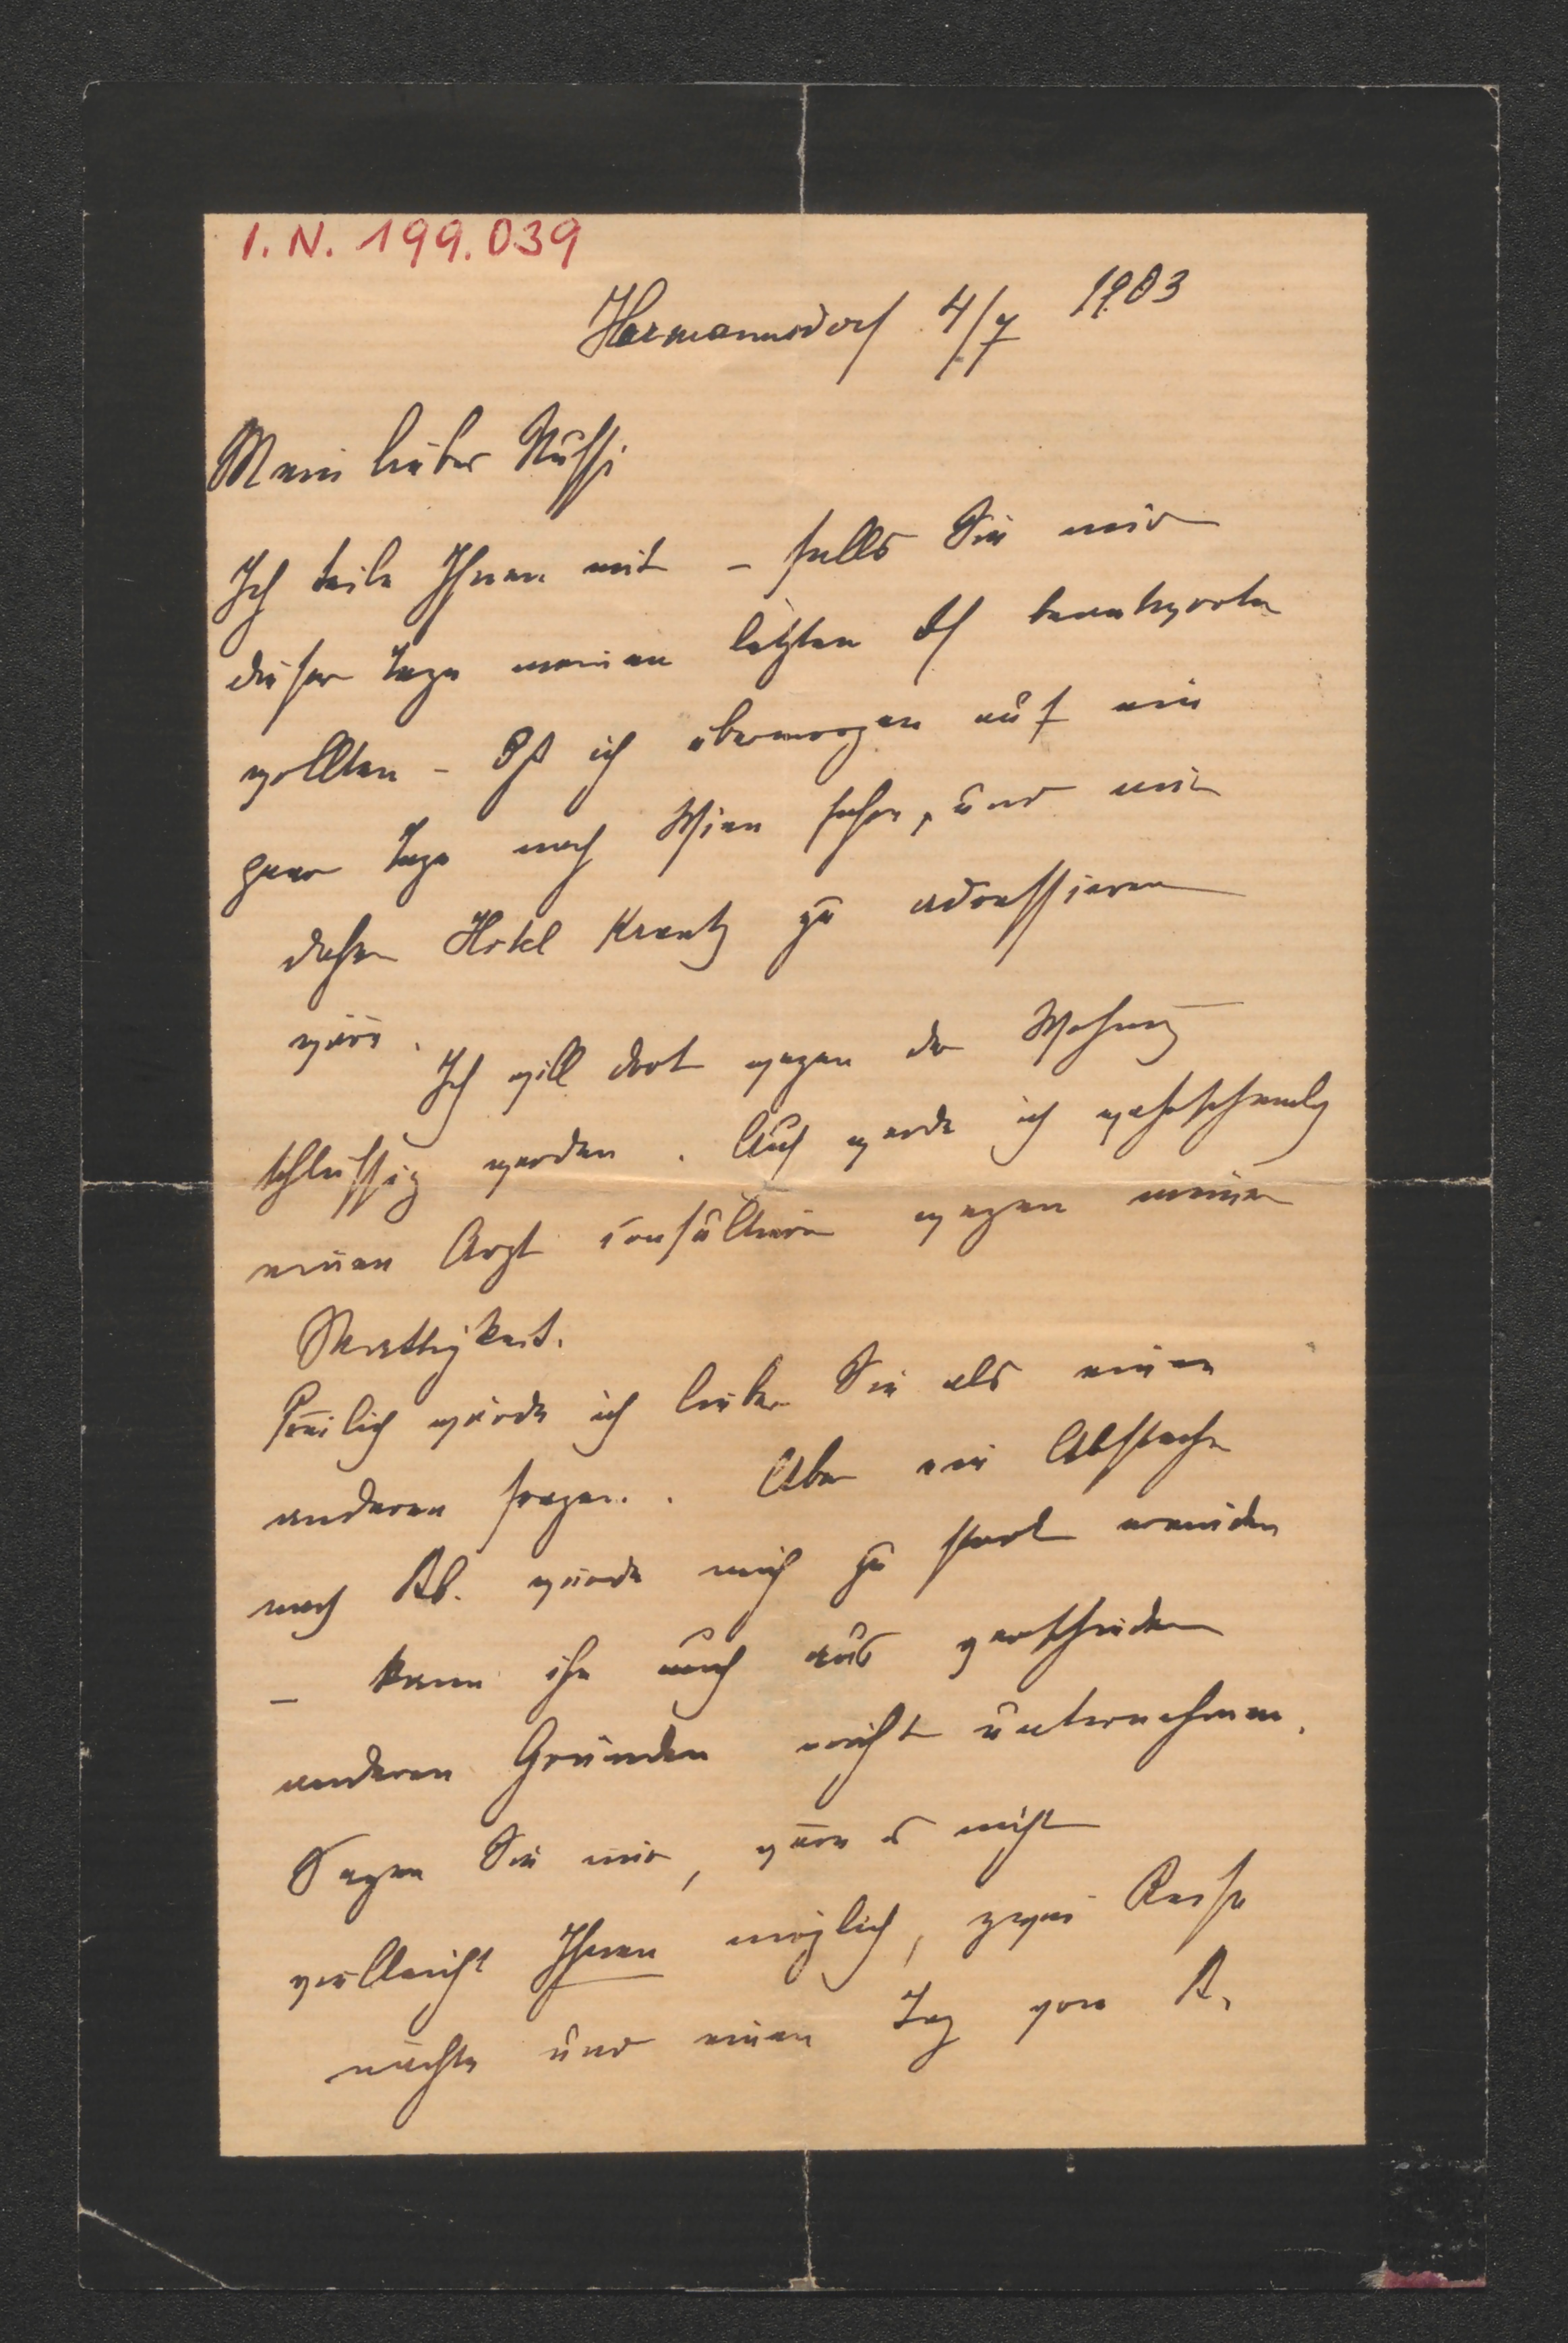 I.N. 199.039
Harmannsdorf 4/7 1903
Mein lieber Russi
Ich teile Ihnen mit – falls Sie mir
dieser Tage meinen letzten Bf beantworten
wollten – daß ich übermorgen auf ein
paar Tage nach Wien fahre, und mir
daher Hotel Krantz zu adressieren
wäre.
Ich will dort wegen der Wohnung
schlüssig werden. Auch werde ich wahrscheinlich
einen Arzt consultieren wegen meiner
Mattigkeit.
Freilich würde ich lieber Sie als einen
anderen fragen. Aber ein Abstecher
nach Ab. würde mich zu stark ermüden
– kann ihn auch aus verschiedenen
anderen Gründen nicht unternehmen.
Sagen Sie mir, wäre es nicht
vielleicht Ihnen möglich, zwei Reise
nächte und einen Tag von A.